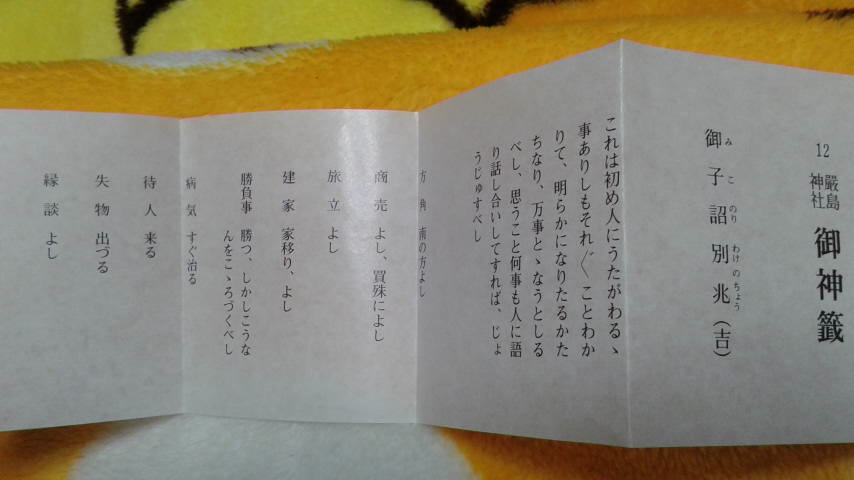 12 嚴島神社 御神籤
御子詔別兆(吉)
みこのりわけのちょう
これは初め人にうたがわるゝ
事ありしもそれ〴〵ことわか
りて、明らかになりたるかた
ちなり、万事とゝなうとしる
べし、思うこと何事も人に語
り話し合いしてすれば、じょ
うじゅすべし
方角 南の方よし
商売 よし、買殊によし
旅立 よし
建家 家移り、よし
勝負事 勝つ、しかしこうな
んをこゝろづくべし
病気 すぐ治る
待人 来る
失物 出づる
縁談 よし